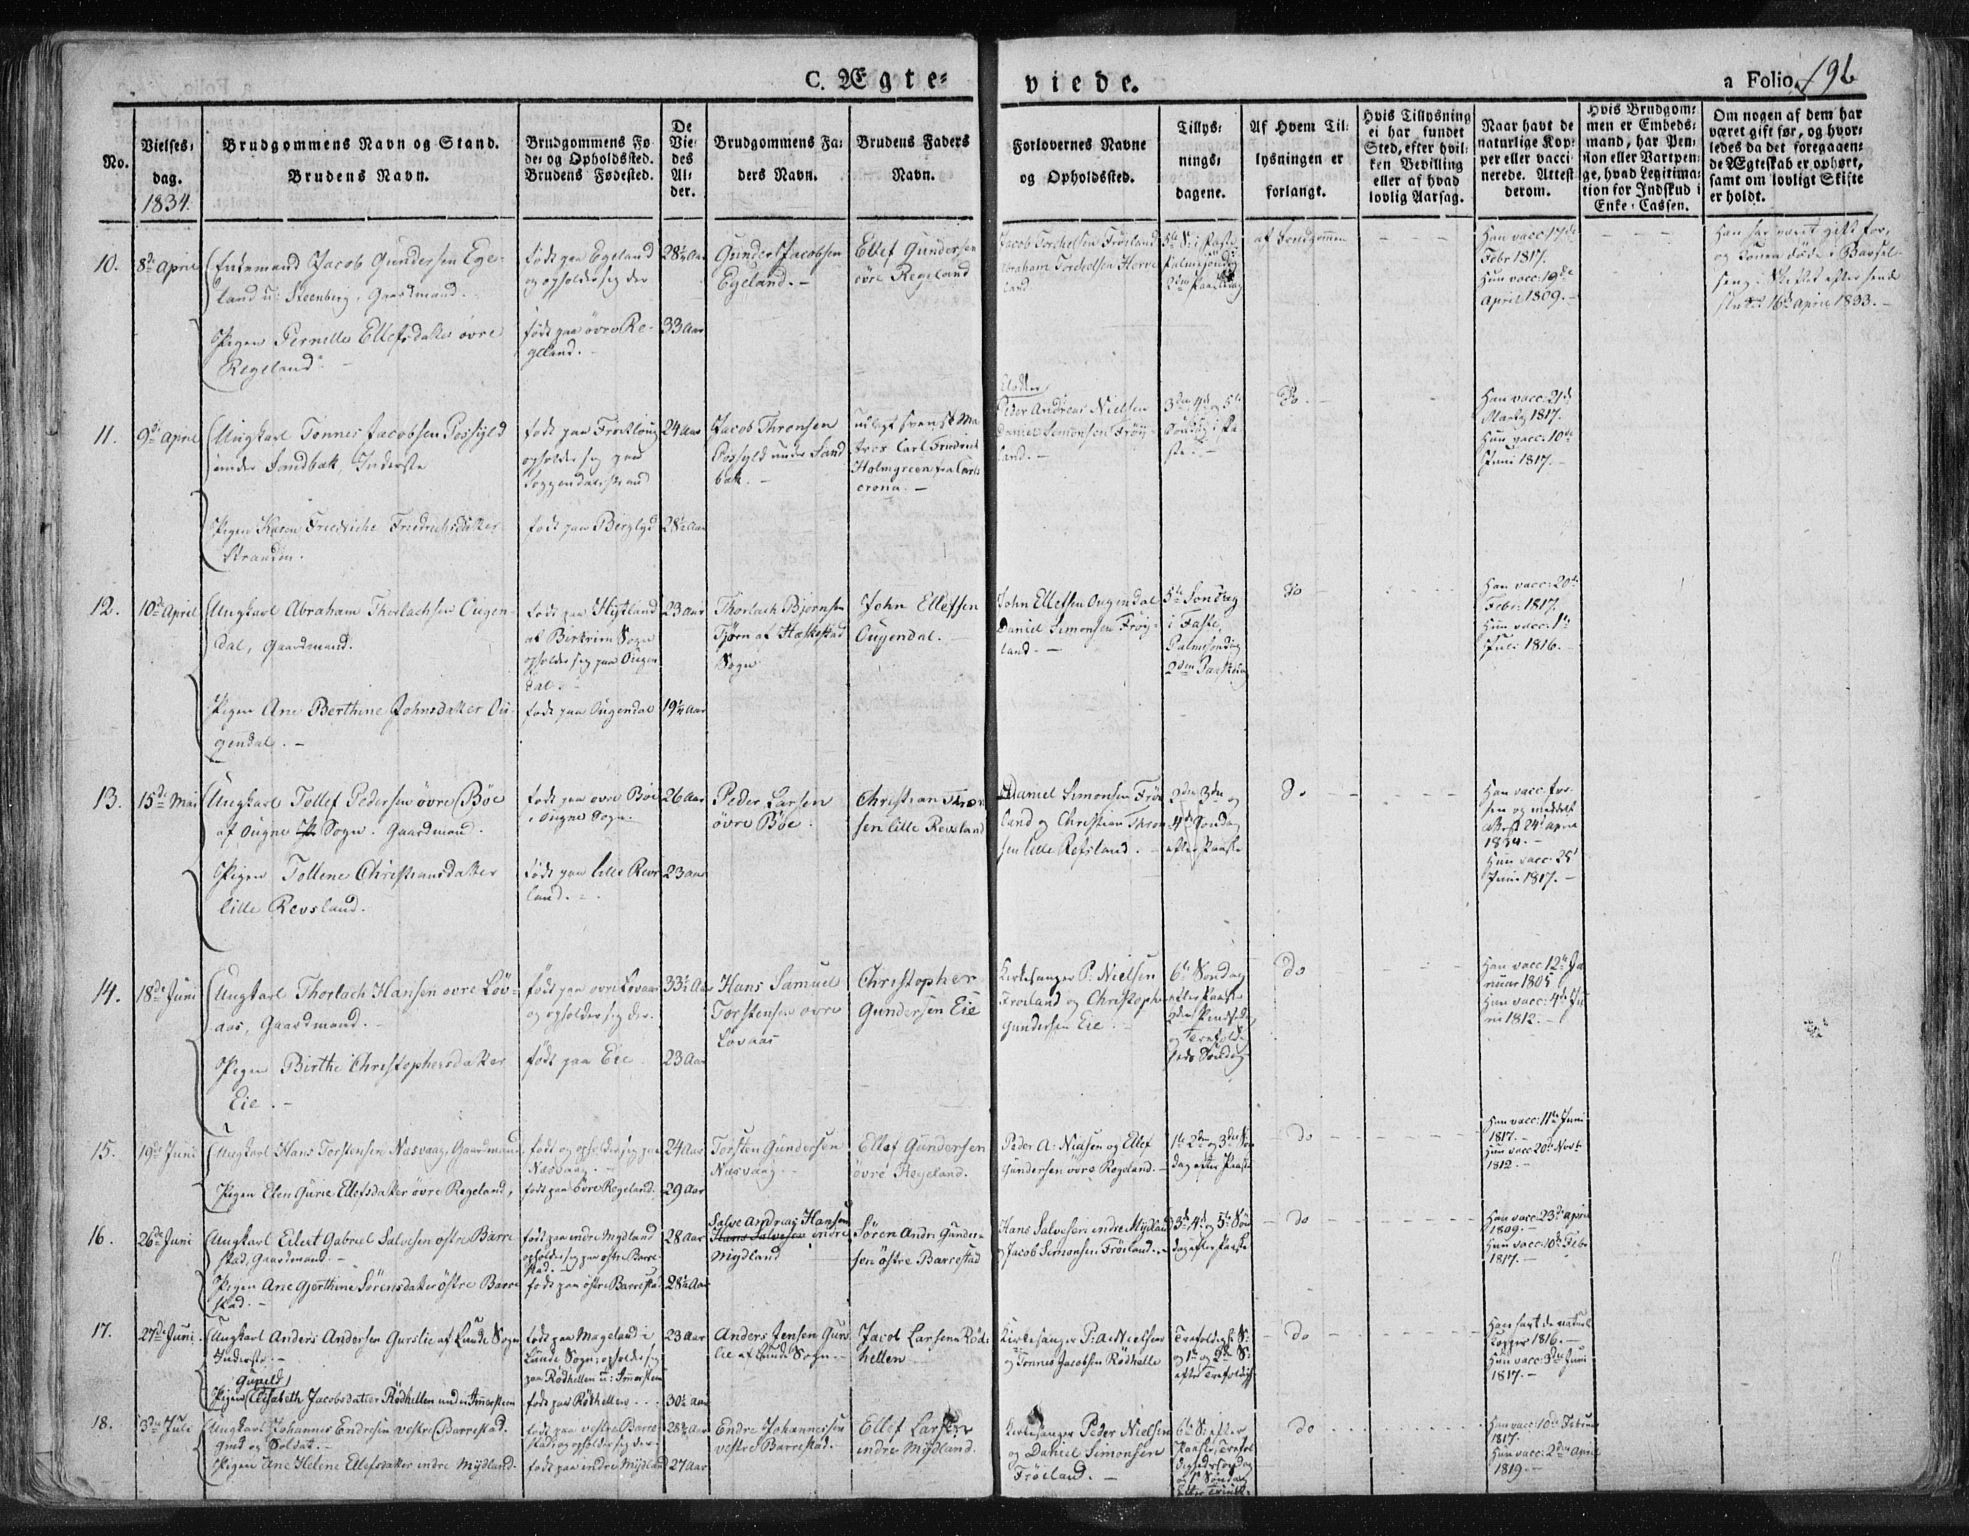 C. Ægte-
viede.
a Folio 196
No.
Vielses-
dag.
1834.
Brudgommens Navn og Stand.
Brudens Navn.
Brudgommens Fø-
de- og Opholdssted.
Brudens Fødested.
De
Vie-
des
Al-
der.
Brudgommens Fa-
ders Navn.
Brudens Faders
Navn.
Forlovernes Navne
og Opholdssted.
Tillys-
nings-
dagene.
Af Hvem Til-
lysningen er
forlangt.
Hvis Tillysning
ei har fundet
Sted, efter hvil-
ken Bevilling
eller af hvad
lovlig Aarsag.
Naar havt de
naturlige Kop-
per eller vacci-
nerede. Attest
derom.
Hvis Brudgom-
men er Embeds-
mand, har Pen-
sion eller Vartpen-
ge, hvad Legitima-
tion for Indskud i
Enke-Cassen.
Om nogen af dem har
været gift før, og hvor-
ledes da det foregaaen-
de Ægteskab er ophørt,
samt om lovligt Skifte
er holdt.
10.
8de April
Enkemand Jacob Gundersen Ege-
land u: Steenberg, Gaardmand.
Pigen Pernille Ellefsdatter øvre
Regeland.
født paa Egeland
og opholder sig der
født paa øvre Re-
geland.
28½ Aar
33 Aar
Gunder Jacobsen
Egeland.
Ellef Gundersen
øvre Regeland
Jacob Torkelsen Frøiland
Abraham Torkelsen
land
5te S: i Faste
Palmesøndag
2den Paaskedag
af Brudgommen
Han vacc: 17de
Febr 1817.
Hun vacc: 19de
April 1809.
Han har været gift før,
og Konen døde i Barsel-
seng. Skiftet efter hende
sluttet 16de April 1833.
11.
9de April
Ungkarl Tønnes Jacobsen Possyld
under Sandbæk, Inderste
Pigen Karen Friedriche Friedrichsdatter
Stranden.
født paa
opholder sig paa
Soggendalsstrand
født paa Berglyd
24 Aar
28½ Aar
Jacob Thronsen
Possyld under Sand
bæk.
udlagt svensk Ma-
tros Carl Friedrich
Holmgreen fra Carls
crona.
Peder Andreas Nielsen
Daniel Simonsen Frøi-
land.
3die 4de og 5te
Søndag i Fa-
ste.
Do
Han vacc: 21de
Marty 1817.
Hun vacc: 10de
Juni 1817.
12.
10de April
Ungkarl Abraham Thorlachsen Ougen-
dal, Gaardmand.
Pigen Ane Berthine Johnsdatter Ou-
gendal.
født paa Higtland
af Bierkrim Sogn
opholder sig paa Ougen
dal.
født paa Ougendal
23 Aar
19½ Aar
Thorlach Bjørnsen
Tjørn af Hæskestad
Sogn
John Ellefsen
Ougendal.
John Ellefsen Ougendal
Daniel Simonsen Frøy-
land.
5te Søndag
i Faste
Palmesøndag
2den Paaskedag
do
Han vacc: 20de
Febr: 1817.
Hun vacc: 1ste
Juli 1816.
13.
15de Mai
Ungkarl Tollef Pedersen øvre Bøe
af Ougne Sogn. Gaardmand.
Pigen Tollene Christiansdatter
lille Revsland.
født paa øvre Bøe
i Ougne Sogn.
født paa lille Revs
land.
26 Aar
23 Aar
Peder Larsen
øvre Bøe
Christian Thron
sen lille Revsland
Daniel Simonsen Frøi
land og Christian Thron
sen lille Refsland.
2den 3die og
4de Søndag
efter Paaske
do
Han vacc: for-
sen og meddelt
Attest 24de April
1834.
Hun vacc: 25
Juni 1817.
14.
18de Juni
Ungkarl Thorlach Hansen øvre Løv-
aas, Gaardmand.
Pigen Birthe Christophersdatter
Eie.
født paa øvre Lovaas
og opholder sig der.
født paa Eie.
33½ Aar
23 Aar
Hans Samuel
Torstensen øvre
Lovaas
Christopher
Gundersen Eie
Kirkesanger P: Nielsen
Frøiland og Christopher
Gundersen Eie.
6te Søndag
efter Paaske
2den Pindsedag
og Trefoldig-
heds Søndag
do
Han vacc 12te Ja
nuar 1805
Hun vacc: 4de Ju
ni 1812.
15.
19de Juni
Ungkarl Hans Torstensen Næsvaag, Gaardmand
Pigen Elen Gurie Ellefsdatter øvre Regeland,
født og opholder sig paa
Næsvaag.
født paa øvre Regeland.
24 Aar
29 Aar
Torsten Gundersen
Næsvaag.
Ellef Gundersen
øvre Regeland.
Peder A: Nielsen og Ellef
Gundersen øvre Regeland.
1ste 2den og 3die Søn
dag efter Paaske
do
Han vacc: 11te Juni
1817.
Hun vacc 20de Novb
1812.
16.
26de Juni
Ungkarl Eilert Gabriel Salvesen østre Barre
stad, Gaardmand.
Pigen Ane Gjerthine Sørensdatter østre Barre
stad.
født paa indre Mydland
opholder sig paa østre Barre-
stad.
født paa østre Barrestad
28 Aar
28½ Aar
Salve Andreas Hansen
Hans Salvesen indre
Mydland
Søren Andr: Gunder-
sen østre Barrestad
Hans Salvesen indre Mydland
og Jacob Simonsen Frøiland.
3die 4de og 5te Søn
dag efter Paaske
do
Han vacc: 23de April
1809.
Hun vacc: 10de Febr
1817.
17.
27de Juni
Ungkarl Anders Andersen Gurslie af Lunde Sogn
Inderste.
Gunild
Pigen Elisabeth Jacobsdatter Rødhellen under Immerstein
født paa Mageland i
Lunde Sogn, opholder sig
paa Rødhellen u: Immerstein
født paa Rødhellen
23 Aar
30½ Aar
Anders Jensen Gurs
lie af Lunde Sogn
Jacob Larsen Rød-
hellen
Kirkesanger P: A: Nielsen
og Tønnes Jacobsen Rødhelle
Trefoldigh: S:
og 1ste og 2den S:
efter Trefoldigh:
do
Han havt de naturl
Kopper 1816.
Hun vacc: 3die Juni
1817.
18.
3die Juli
Ungkarl Johannes Endresen vestre Barrestad.
Gmd og Soldat.
Pigen Ane Helene Ellefsdatter indre Mydland.
født paa vestre Barre-
stad og opholder sig der.
født paa indre Mydland
28¾ Aar
27 Aar
Endre Johannesen
vestre Barrestad.
Ellef Larsen
indre Mydland.
Kirkesanger Peder Nielsen
og Daniel Simonsen
Frøiland.
6te S: efter
Paaske, Trefol-
digheds Søndag
og 1ste Søndag
efter Trinit:
do
Han vacc: 10de Februar
1817.
Hun vacc: 2den April
1819.